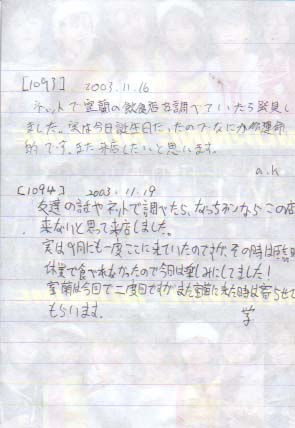 [1093] 2003.11.16
ネットで室蘭の飲食店を調べていたら発見し
ました。実は今日誕生日だったのでなにか運命
的です。また来店したいと思います。
a.k
[1094] 2003.11.19
友達の話やネットで調べたら、なっちファンならこの店
来ないと思って来店しました。
実は9月にも一度ここに来ていたのですが、その時は臨時
休業で食べれなかったので今回は楽しみにしてました!
室蘭は今回で二度目ですがまた室蘭に来た時は寄らせて
もらいます。
学